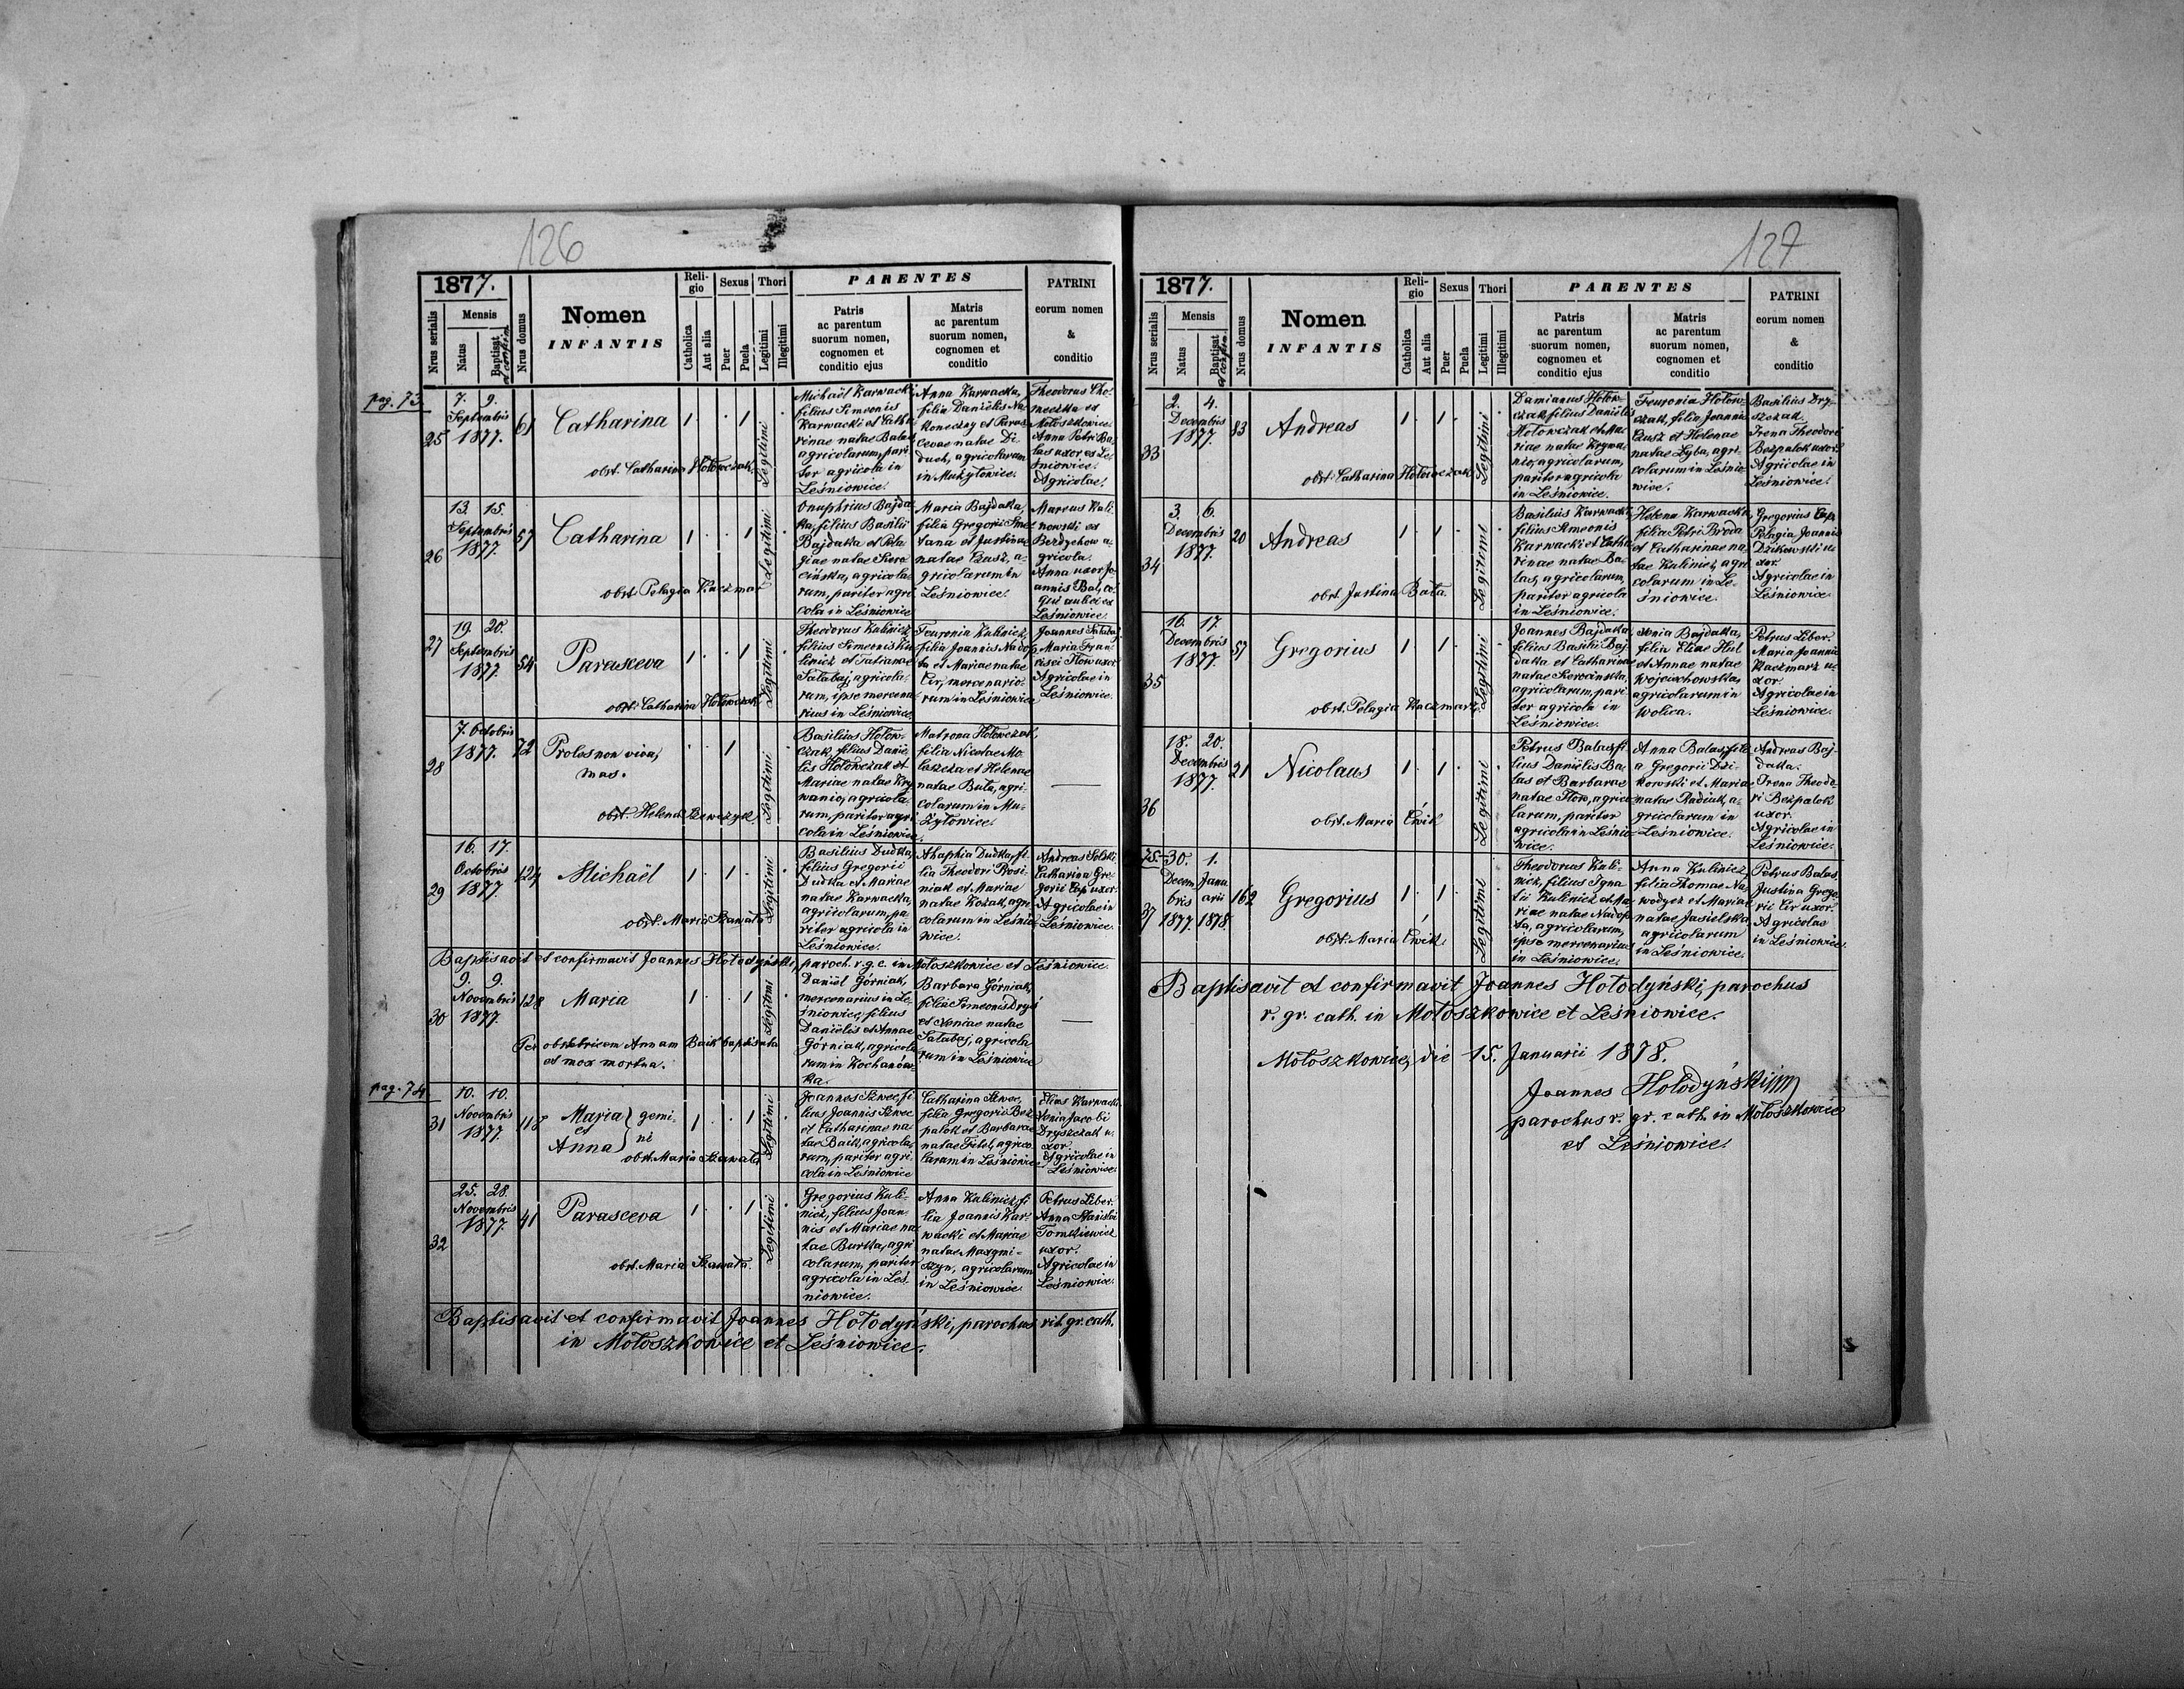 126
1877.
Nrus serialis
Mensis
Natus
Baptisat
Nrus domus
Nomen
INFANTIS
Reli-
gio
Catholica
Aut alia
Sexus
Puer
Puela
Thori
Legitimi
Illegitimi
PARENTES
Patris
ac parentum
suorum nomen,
cognomen et
conditio ejus
Matris
ac parentum
suorum nomen,
cognomen et
conditio
PATRINI
eorum nomen
&
conditio
pag. 73
25
7. 9.
Septembris
1877.
61
Catharina
1 . . 1 .
Legitimi
obst. Catharina Hołowczak.
Michaël Karwacki,
filius Simeonis
Karwacki et Catha
rinae natae Balas
agricolarum, pari
ter agricola in
Leśniowice.
Anna Karwacka,
filia Daniëlis Na
koneczny et Paras
cevae natae Di
duch, agricolarum
in Mużyłowice.
Theodorus Cho-
meczka ex
Mołoszkowice.
Anna Petri Ba
las uxor, ex Le
śniowice.
Agricolae.
26
13. 15.
Septembris
1877.
57
Catharina
1 . . 1 .
Legitimi
obst. Pelagia Kaczmar
Onuphrius Bajda
ka, filius Basilii
Bajdaka et Pela
giae natae Skoro
cińska, agricola
rum, pariter agri
cola in Leśniowice
Maria Bajdaka,
filia Gregorii Sme
tana et Justinae
natae Czasz, a-
gricolarum in
Leśniowice.
Marcus Kali
nowski ex
Berdychow a-
gricola.
Anna uxor Jo
annis Bal, co
qui aulici ex
Leśniowice.
27
19. 20.
Septembris
1877.
54
Parasceva
1 . . 1 .
Legitimi
obst. Catharina Hołowczak
Theodorus Kulinicz,
filius Simeonis Ku
linicz et Tatianae
Sałabaj, agricola-
rum, ipse mercena
rius in Leśniowice
Feuronia Kulinicz,
filia Joannis Nado
ta et Mariae natae
Cir, mercenario-
rum in Leśniowice
Joannes Sałabaj
Maria Fran
cisci Flow uxor
Agricolae in
Leśniowice.
28
7. Octobris
1877.
72
Proles non viva,
mas.
. . 1
Legitimi
obst. Helena Szewczyk.
Basilius Hołow-
czak, filius Danië-
lis Hołowczak et
Mariae natae Kry
wanio, agricola-
rum, pariter agri
cola in Leśniowice.
Matrona Hołowczak,
filia Nicolae Mo
laszcza et Helenae
natae Buła, agri-
colarum in Mu-
żyłowice.
29
16. 17.
Octobris
1877.
124
Michaël
1 . 1 . .
Legitimi
obst. Maria Szawała
Basilius Dudka,
filius Gregorii
Dudka et Mariae
natae Karwacka,
agricolarum, pa-
riter agricola in
Leśniowice.
Ahaphia Dudka, fi-
lia Theodori Rosi
niak et Mariae
natae Kozak, agri
colarum in Leśnio
wice.
Catharina Gre-
gorii Cap uxor.
Agricolae in
Leśniowice.
Baptisavit et confirmavit Joannes Hołodyński, paroch. r. g. c. in Mołoszkowice et Leśniowice.
30
9. 9.
Novembris
1877.
128
Maria
1 . . 1 .
Legitimi
Per obstetricem Annam Baik baptisata
et mox mortua.
Daniël Górniak,
mercenarius in Le-
śniowice, filius
Daniëlis et Annae
Górniak, agricola
rum in Kochanów-
ka.
Barbara Górniak,
filia Simeonis Dryś
et Xeniae natae
Sałabaj, agricola
rum in Leśniowice
pag. 74
31
10. 10.
Novembris
1877.
118
Maria
et
Anna
gemi-
ni
1 . . 1 .
Legitimi
obst. Maria Szawała
Joannes Szwec, fi
lius Joannis Szwec
et Catharinae na
tae Baik, agricola
rum, pariter agri-
cola in Leśniowice
Catharina Szwec,
filia Gregorii Bez
palok et Barbarae
natae Fitel, agrico
larum in Leśniowice
Elias Karwacki
Xenia Jacobi
Dryszczak u-
xor.
Agricolae in
Leśniowice.
32
25. 28.
Novembris
1877.
41
Parasceva
1 . . 1 .
Legitimi
obst. Maria Szawała.
Gregorius Kuli-
nicz, filius Joan-
nis et Mariae na
tae Burka, agri
colarum, pariter
agricola in Leś
niowice.
Anna Kulinicz, fi
lia Joannis Kar-
wacki et Mariae
natae Maxymi-
szyn, agricolarum
in Leśniowice
Petrus Liber.
Anna Stanislai
Tomkiewicz
uxor.
Agricolae in
Leśniowice.
Baptisavit et confirmavit Joannes Hołodyński, parochus rit. gr. cath.
in Mołoszkowice et Leśniowice.
127
1877.
Nrus serialis
Mensis
Natus
Baptisat
Nrus domus
Nomen
INFANTIS
Reli-
gio
Catholica
Aut alia
Sexus
Puer
Puela
Thori
Legitimi
Illegitimi
PARENTES
Patris
ac parentum
suorum nomen,
cognomen et
conditio ejus
Matris
ac parentum
suorum nomen,
cognomen et
conditio
PATRINI
eorum nomen
&
conditio
33
2. 4.
Decembris
1877.
83
Andreas
1 . 1 . .
Legitimi
obst. Catharina Hołowczak
Damianus Hołow-
czak, filius Daniëlis
Hołowczak et Ma
riae natae Krywa
nio, agricolarum,
pariter agricola
in Leśniowice.
Feuronia Hołow-
czak, filia Joannis
Czasz et Helenae
natae Zyba, agri-
colarum in Leśnio
wice.
Basilius Dry-
szczak.
Irena Theodori
Bezpalok uxor.
Agricolae in
Leśniowice.
34
3. 6.
Decembris
1877.
20
Andreas
1 . 1 . .
Legitimi
obst. Justina Buła.
Basilius Karwacki,
filius Simeonis
Karwacki et Catha
rinae natae Ba-
las, agricolarum,
pariter agricola
in Leśniowice.
Helena Karwacka,
filia Petri Broda
et Catharinae na
tae Kulinicz, agri
colarum in Le-
śniowice.
Gregorius Cap
Pelagia Joannis
Dzikowski u
xor.
Agricolae in
Leśniowice.
35
16. 17.
Decembris
1877.
57
Gregorius
1 . 1 . .
Legitimi
obst. Pelagia Kaczmar
Joannes Bajdaka,
filius Basilii Baj
daka et Catharinae
natae Skorocińska,
agricolarum, pari-
ter agricola in
Leśniowice.
Xenia Bajdaka,
filia Eliae Hul
et Annae natae
Wojciechowska,
agricolarum in
Wolica.
Petrus Liber.
Maria Joannis
Kaczmarz u-
xor.
Agricolae in
Leśniowice.
36
18. 20.
Decembris
1877.
21
Nicolaus
1 . 1 . .
Legitimi
obst. Maria Ćwik
Petrus Balas, fi
lius Daniëlis Ba
las et Barbarae
natae Flow, agrico
larum, pariter
agricola in Leśnio
wice.
Anna Balas, fili
a Gregorii Dzi-
kowski et Mariae
natae Radiuk, a-
gricolarum in
Leśniowice.
Andreas Baj-
daka.
Irena Theodo-
ri Bezpalok
uxor.
Agricolae in
Leśniowice.
75.
37
30. 1.
Decem Janu
bris arii
1877. 1878.
162
Gregorius
1 . 1 . .
Legitimi
obst. Maria Ćwik.
Theodorus Kuli-
nicz, filius Igna
tii Kulinicz et Ma
riae natae Nadop
ta, agricolarum,
ipse mercenarius
in Leśniowice.
Anna Kulinicz,
filia Thomae Na
wodycz et Mariae
natae Jasielska
agricolarum
in Leśniowice.
Petrus Balas.
Justina Grego
rii Cir uxor.
Agricolae
in Leśniowice.
Baptisavit et confirmavit Joannes Hołodyński, parochus
r. gr. cath. in Mołoszkowice et Leśniowice.
Mołoszkowice, die 15. Januarii 1878.
Joannes Hołodyński
parochus r. gr. cath. in Mołoszkowice
et Leśniowice.